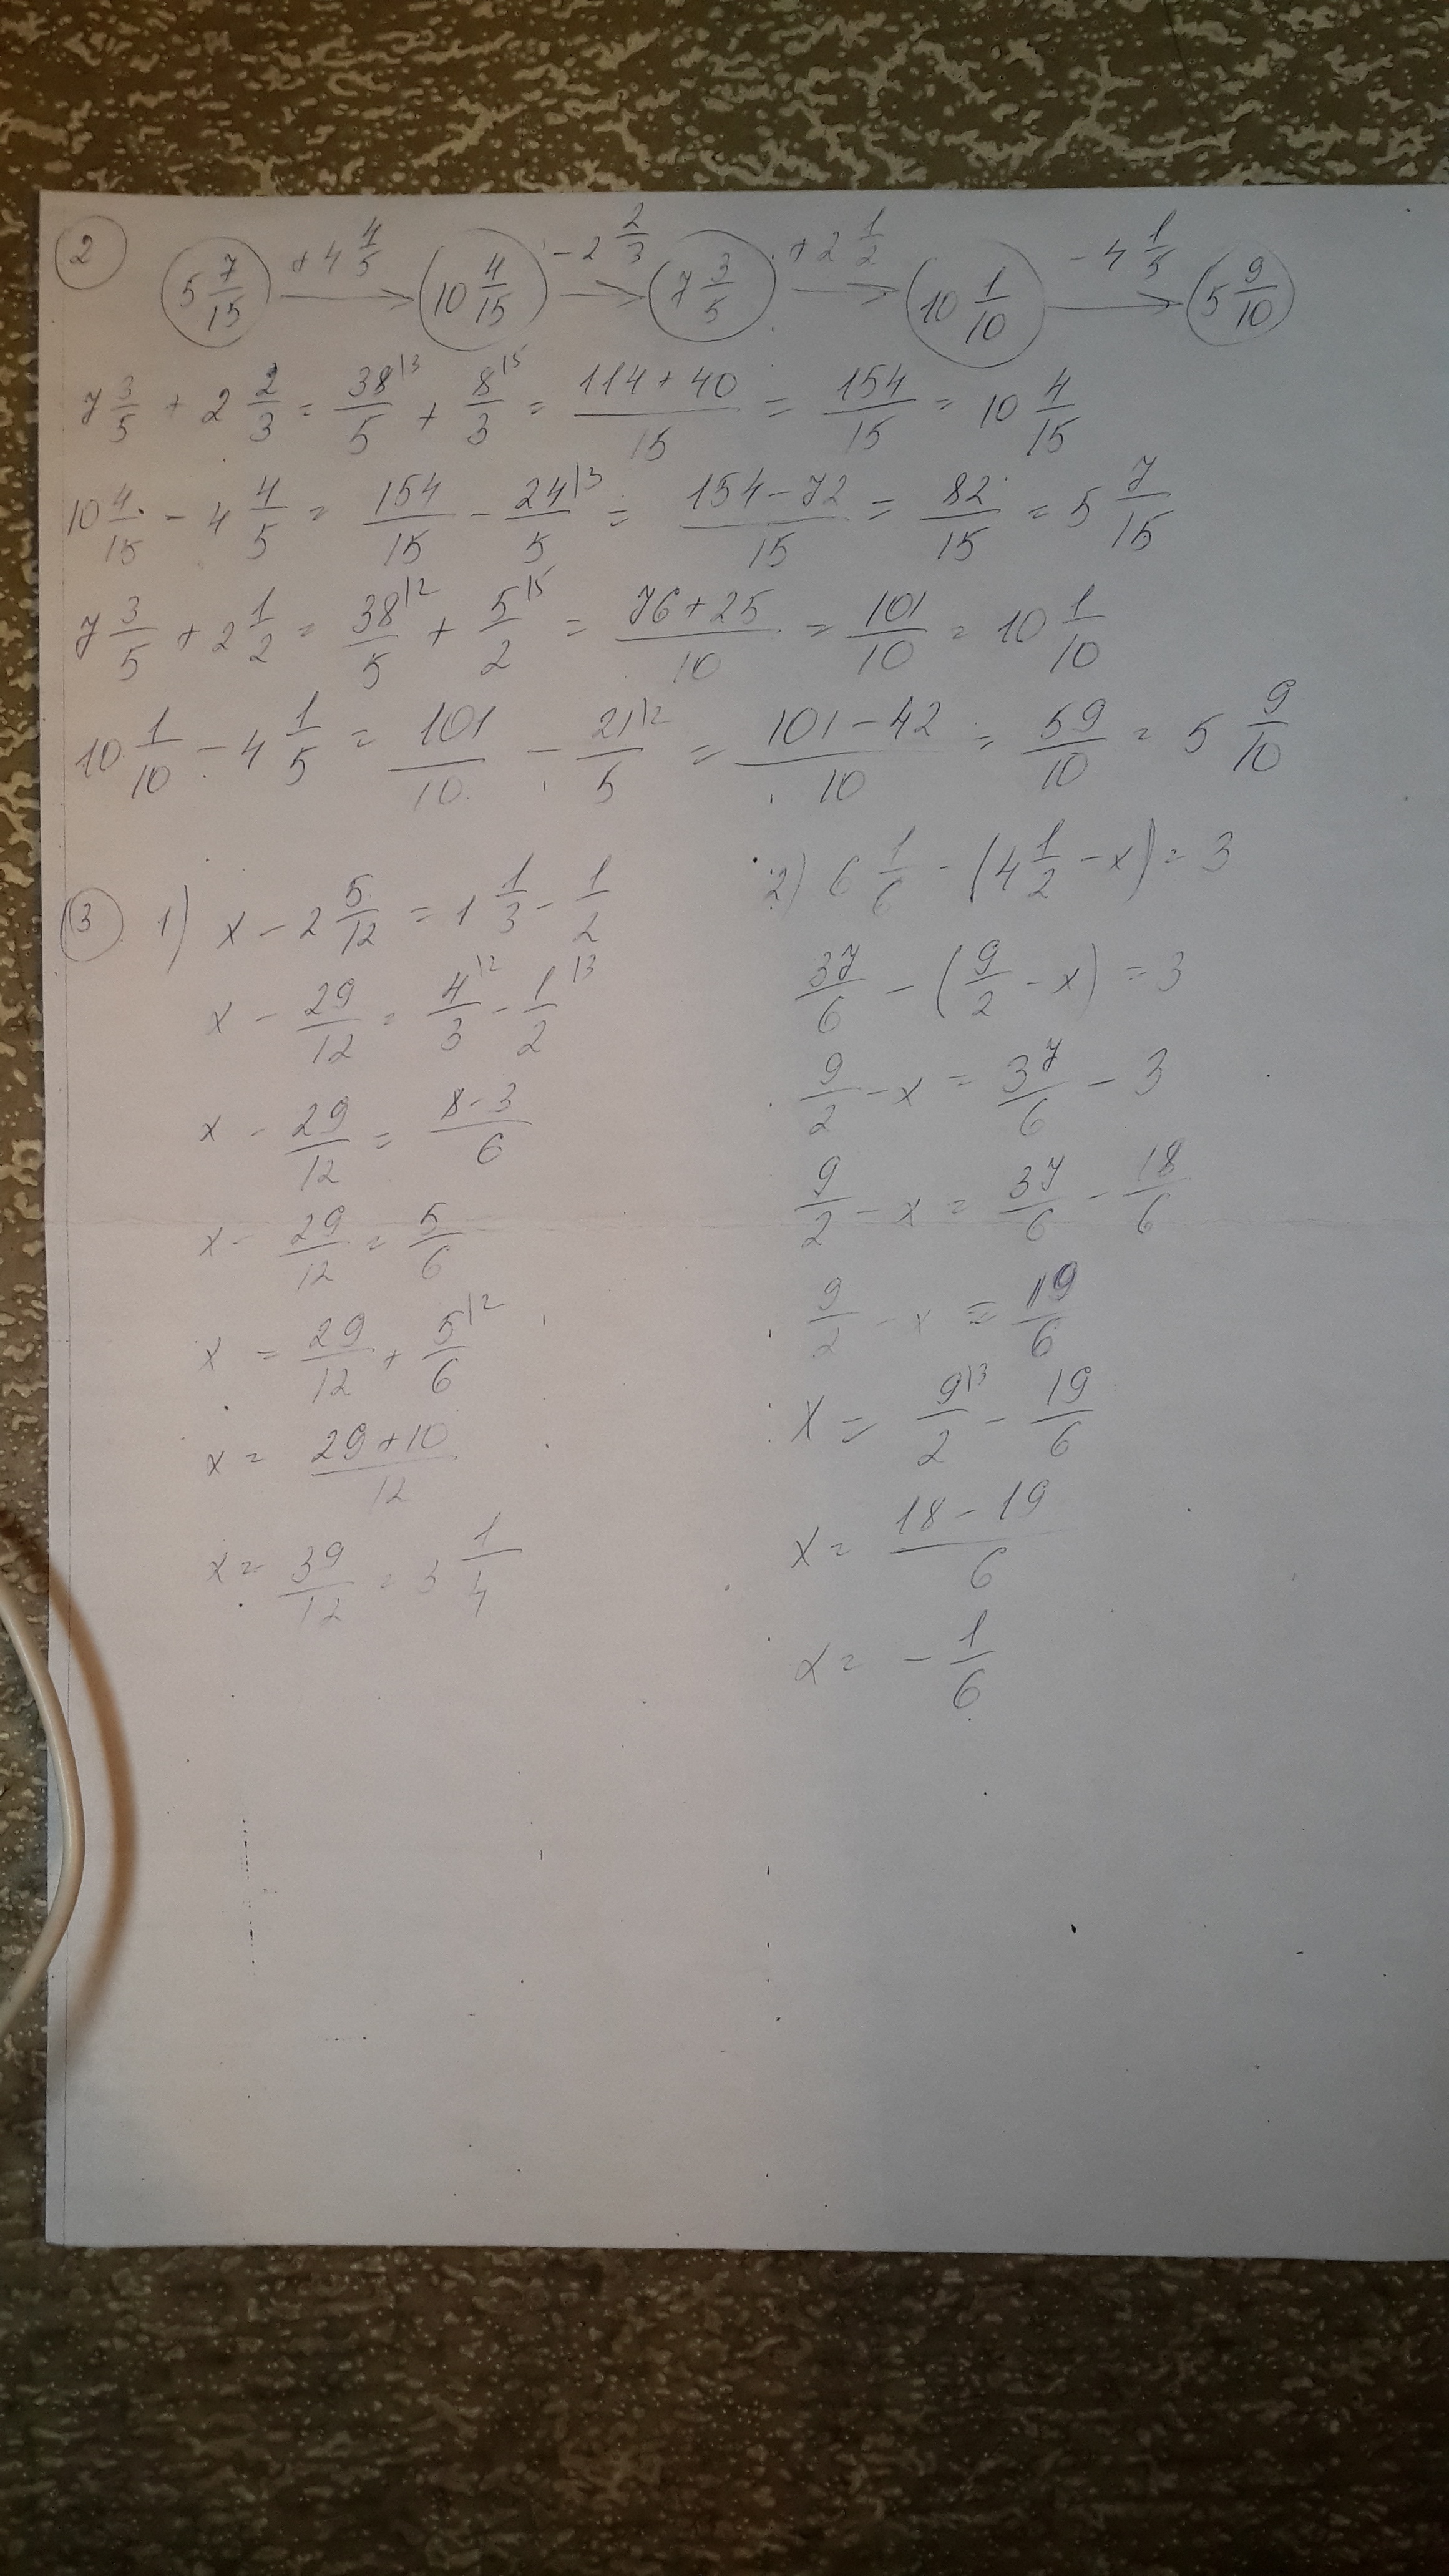 ② 5 7/15 +4 4/5 → 10 4/15 -2 2/3 → 7 3/5 +2 1/2 → 10 1/10 -4 1/5 → 5 9/10
7 3/5 + 2 2/3 = 38\3/5 + 8\5/3 = 114+40/15 = 154/15 = 10 4/15
10 4/15 - 4 4/5 = 154/15 - 24\3/5 = 154-72/15 = 82/15 = 5 7/15
7 3/5 + 2 1/2 = 38\2/5 + 5\5/2 = 76+25/10 = 101/10 = 10 1/10
10 1/10 - 4 1/5 = 101/10 - 21\2/5 = 101-42/10 = 59/10 = 5 9/10
③ 1) x - 2 5/12 = 1 1/3 - 1/2
x - 29/12 = 4\2/3 - 1\3/2
x - 29/12 = 8-3/6
x - 29/12 = 5/6
x = 29/12 + 5\2/6
x = 29+10/12
x = 39/12 = 3 1/4
2) 6 1/6 - (4 1/2 - x) = 3
37/6 - (9/2 - x) = 3
9/2 - x = 37/6 - 3
9/2 - x = 37/6 - 18/6
9/2 - x = 19/6
x = 9\3/2 - 19/6
x = 18-19/6
x = - 1/6